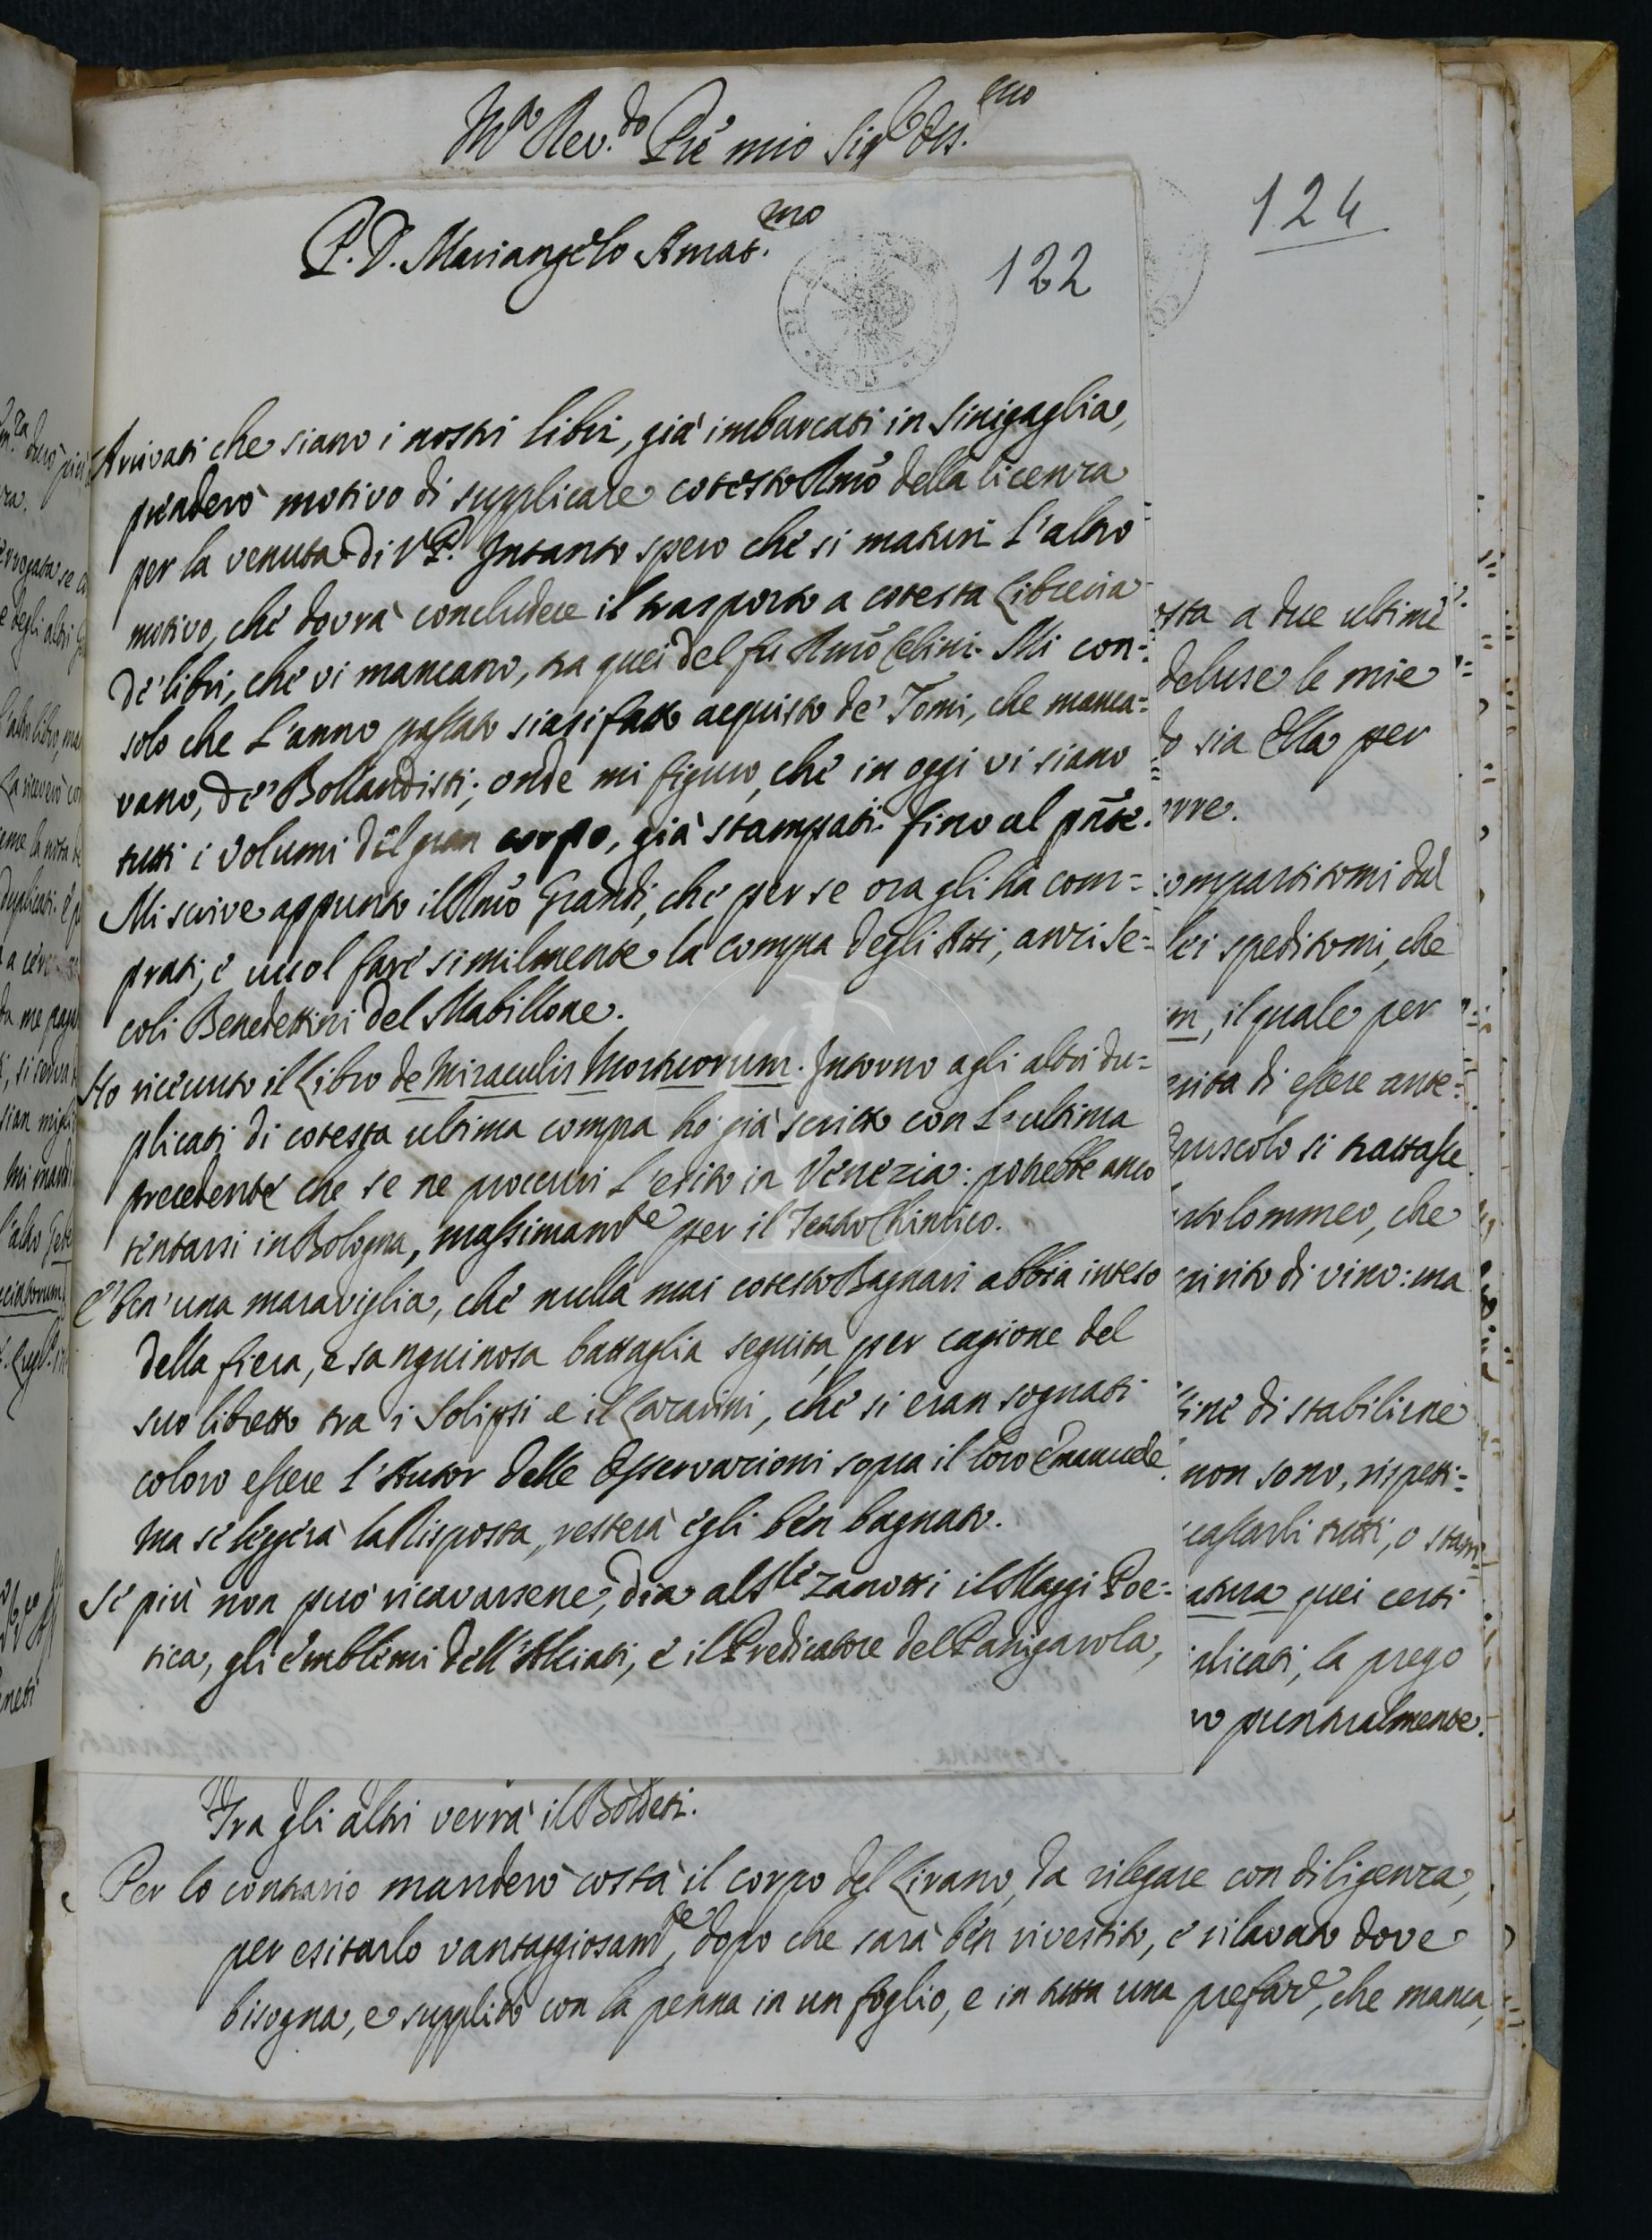 M.o Rev.do P̃re mio Sig.r Oss.mo
124
P. D. Mariangelo Amat.mo
122
Arrivati che siano i nostri libri, già imbarcati in Sinigaglia,
prenderò motivo di supplicare cotesto Rm̃o della licenza
per la venuta di V.P. Intanto spero che si maturi l'altro
motivo, che dovrà concludere il trasporto a cotesta Libreria
de' libri, che vi mancano, tra quei del fu Rm̃o Celini. Mi con=
solo che l'anno passato siasi fatto acquisto de' Tomi, che manca=
vano, de' Bollandisti; onde mi figuro, che in oggi vi siano
tutti i volumi del gran corpo, già stampati fino al pñte.
Mi scrive appunto il Rm̃o Grandi, che per se ora gli ha com=
prati, e vuol fare similmente la compra degli Atti, anzi se=
coli Benedettini del Mabillone.
Ho ricevuto il Libro de Miraculis Mortuorum. Intorno agli altri du=
plicati di cotesta ultima compra ho già scritto con l'ultima
precedente che se ne procuri l'esito in Venezia: potrebbe anco
tentarsi in Bologna, massimam.te per il Teatro Chimico.
E' ben' una maraviglia, che nulla mai cotesto Bagnari abbia inteso
della fiera, e sanguinosa battaglia seguita per cagione del
suo libretto tra i Solipsi e il Lazarini, che si eran sognati
coloro essere l'Autor delle Osservazioni sopra il loro Emanuele.
Ma se leggerà la Risposta, resterà egli ben bagnato.
Se più non può ricavarsene, dia al S.re Zanotti il Maggi Poe=
tica, gli Emblemi dell'Alciati, e il Predicatore del Panigarola,
sta a due ultime
deluse le mie
sia Ella per
rre.
ompartitomi dal
lei speditomi, che
m, il quale per
rita di essere ante=
puscolo si trattasse
rtolommeo, che
pirito di vino: ma
fine di stabilirne
non sono, rispetti=
cassarli tutti, o stam=
atura quei certi
plicati, la prego
vo puntualmente.
Tra gli altri verrà il Boldeti.
Per lo contrario manderò costà il corpo del Lirano, da rilegare con diligenza,
per esitarlo vantaggiosam.te, dopo che sarà ben rivestito, e rilavato dove
bisogna, e supplito con la penna in un foglio, e in tutta una prefaz.e, che manca,